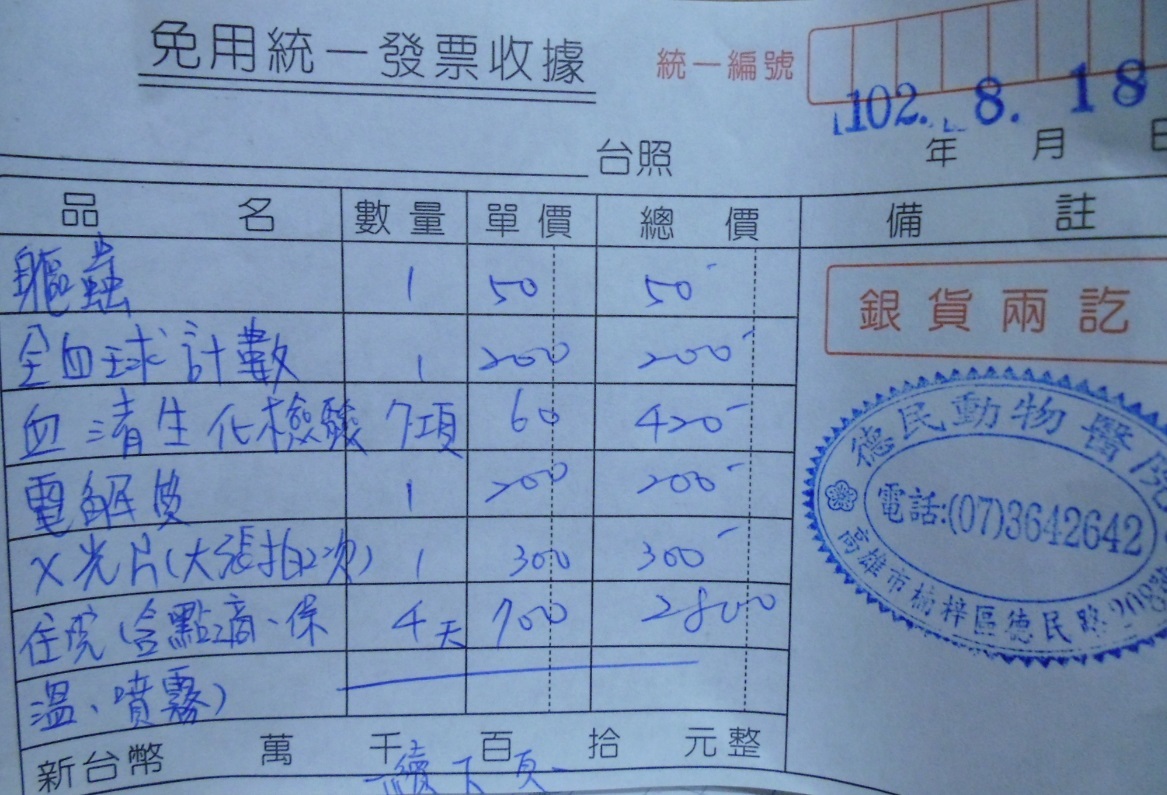 免用統一發票收據
統一編號
102. 8. 18
年 月 日
台照
品名 數量 單價 總價 備註
驅蟲 1 50 50
全血球計數 1 200 200
血清生化檢驗 7項 60 420
電解質 1 200 200
X光片(大張拍2次) 1 300 300
住院(含點滴、保 4天 700 2800
溫、噴霧)
新台幣 萬 千 百 拾 元整
續下頁
銀貨兩訖
德民動物醫院
電話:(07)3642642
高雄市楠梓區德民路208號